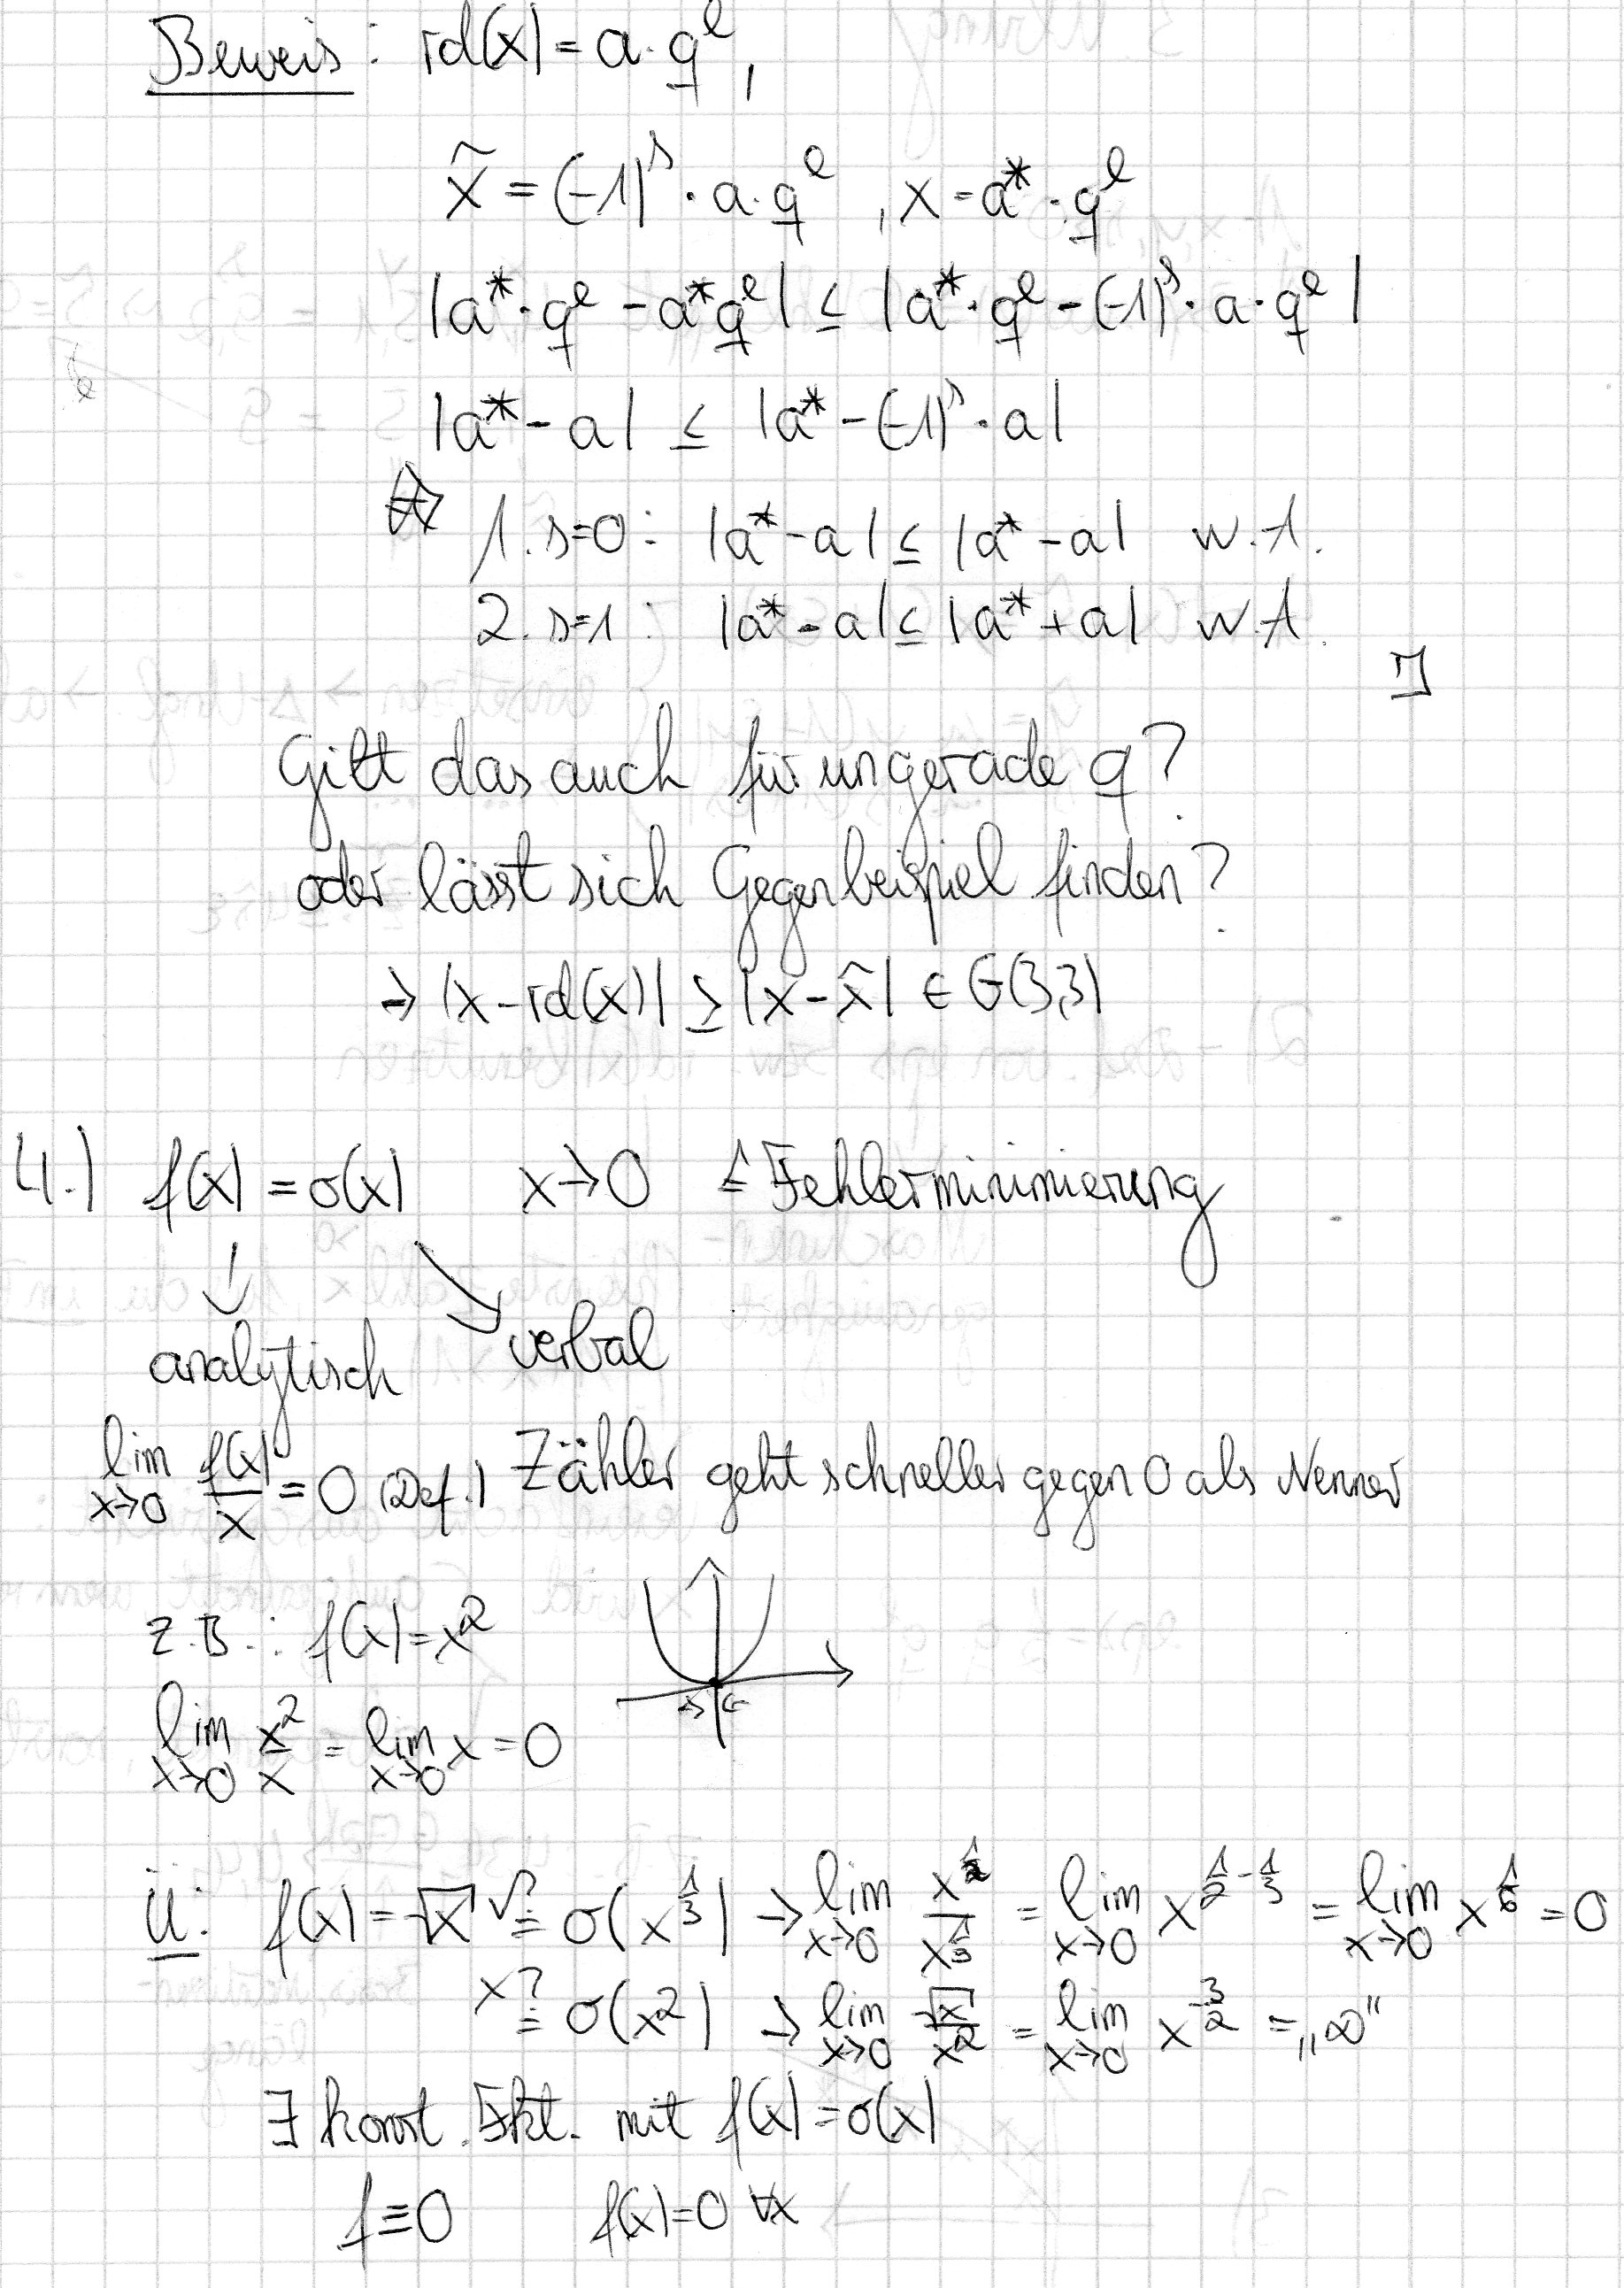 Beweis: rd(x) = a · q^e,
x̃ = (-1)^s · a · q^e , x = a* · q^e
|a* · q^e - a* q^e| ≤ |a* · q^e - (-1)^s · a · q^e|
|a* - a| ≤ |a* - (-1)^s · a|
1. s=0: |a* - a| ≤ |a* - a| w.A.
2. s=1: |a* - a| ≤ |a* + a| w.A.
Gilt das auch für ungerade q?
oder lässt sich Gegenbeispiel finden?
→ |x - rd(x)| ≥ |x - x̃| ∈ G(3,3)
4.) f(x) = o(x) x→0 ≙ Fehlerminimierung
analytisch verbal
lim x→0 f(x)/x = 0 (Def.) Zähler geht schneller gegen 0 als Nenner
z.B.: f(x) = x²
lim x→0 x²/x = lim x→0 x = 0
Ü: f(x) = √x ✓ ?= o(x^(1/3)) → lim x→0 x^(1/2)/x^(1/3) = lim x→0 x^(1/2-1/3) = lim x→0 x^(1/6) = 0
x ?= o(x²) → lim x→0 √x/x² = lim x→0 x^(-3/2) = „∞"
∃ konst. Fkt. mit f(x) = o(x)
f≡0 f(x)=0 ∀x